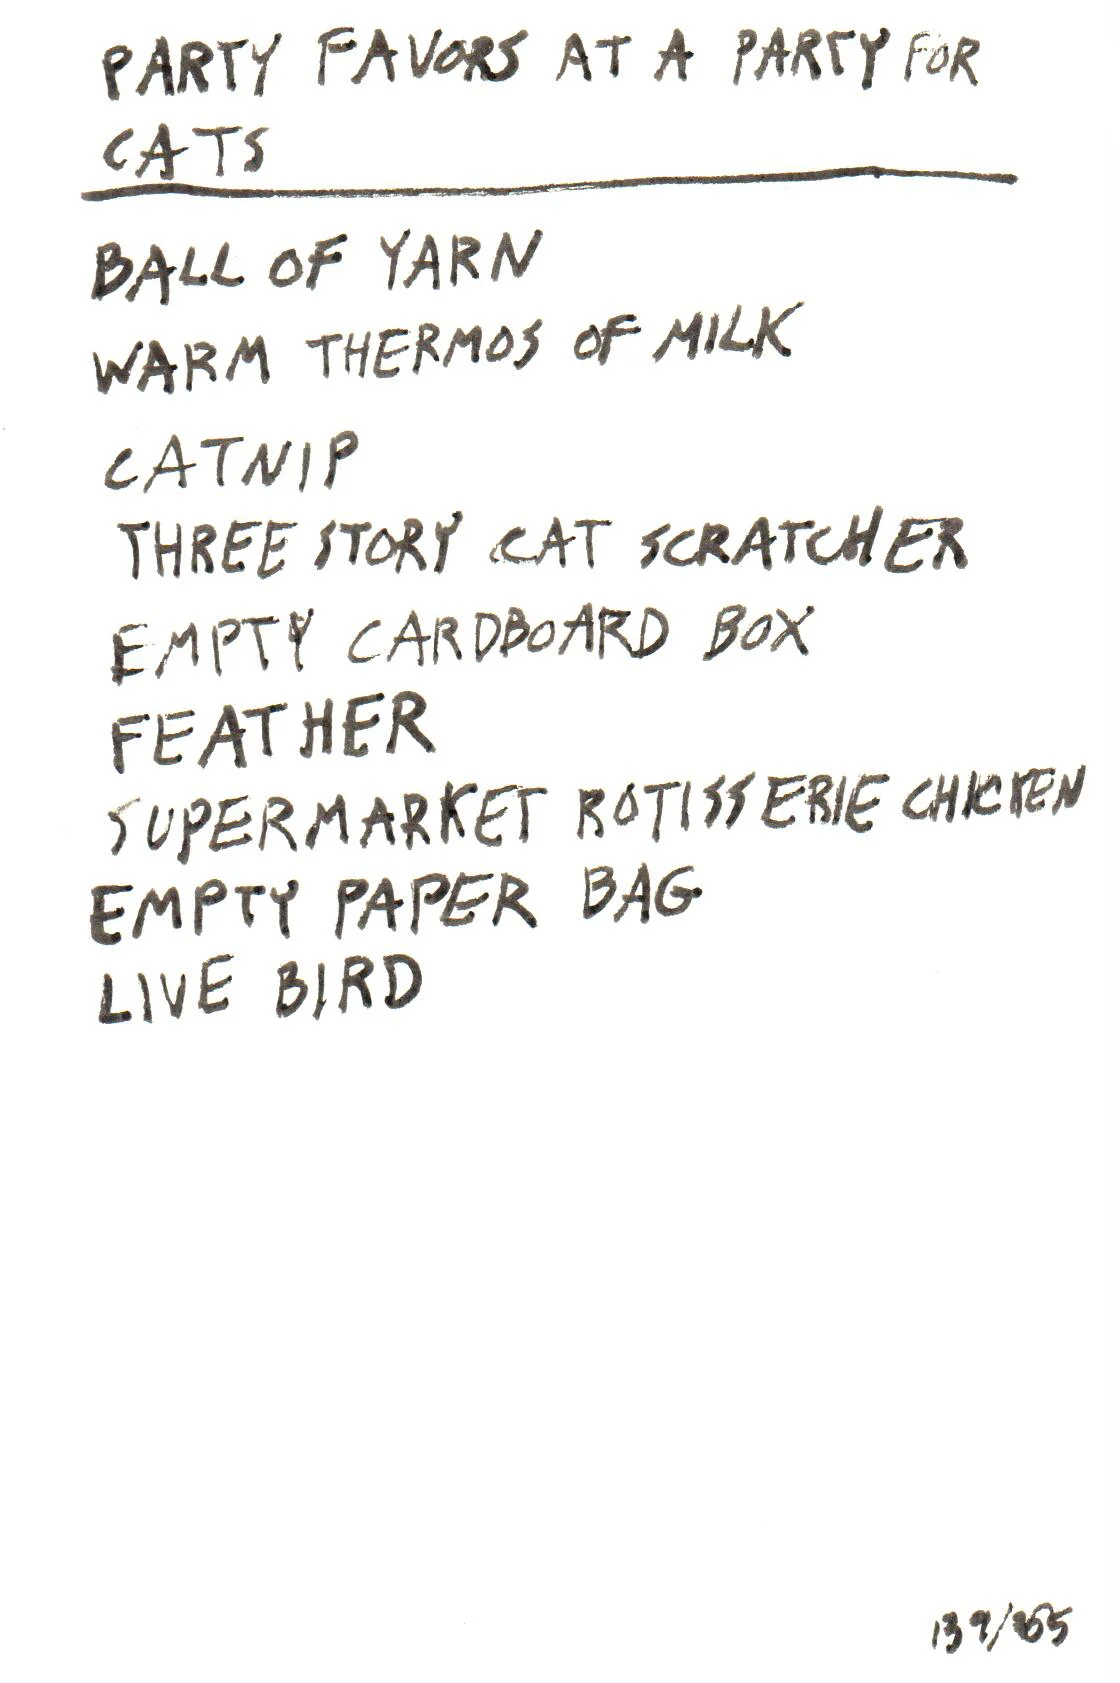 PARTY FAVORS AT A PARTY FOR
CATS
BALL OF YARN
WARM THERMOS OF MILK
CATNIP
THREE STORY CAT SCRATCHER
EMPTY CARDBOARD BOX
FEATHER
SUPERMARKET ROTISSERIE CHICKEN
EMPTY PAPER BAG
LIVE BIRD
139/365